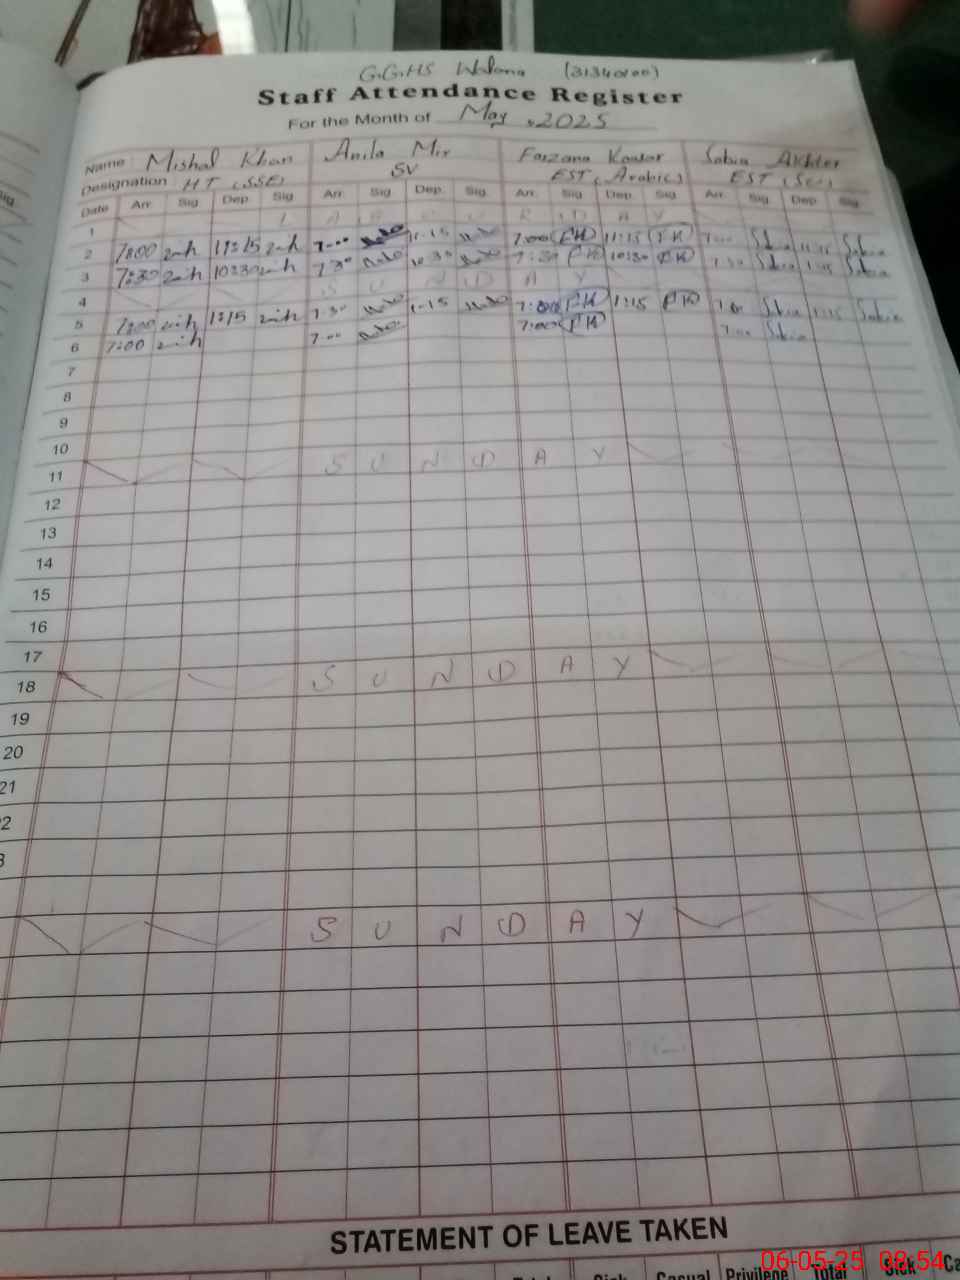 G.G.H.S (31340100)
Staff Attendance Register
For the Month of May, 2025
Name : Mishal Khan Anila Mir Farzana Kousar Sabia Akhter
Designation HT (SSE) SV EST (Arabic) EST
Date Arr. Sig Dep. Sig Arr. Sig Dep. Sig Arr. Sig Dep. Sig Arr. Sig Dep. Sig
1 L A B O U R D A Y
2 7:00 11:15 7:00 11:15 7:00 FK 11:15 FK 7:00 Sabia 11:15 Sabia
3 7:30 10:30 7:30 10:30 7:30 FK 10:30 FK 7:30 Sabia Sabia
4 S U N D A Y
5 7:00 1:15 7:30 1:15 7:00 FK 1:15 FK Sabia 1:15 Sabia
6 7:00 7:00 7:00 FK 7:00 Sabia
7
8
9
10
11 S U N D A Y
12
13
14
15
16
17
18 S U N D A Y
19
20
21
2
3
S U N D A Y
STATEMENT OF LEAVE TAKEN
Sick Casual Privilege Total Sick Ca
06-05-25 08:54